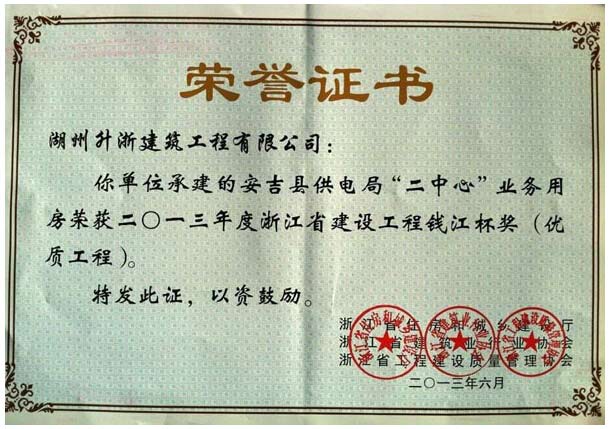 荣誉证书
湖州升浙建筑工程有限公司：
你单位承建的安吉县供电局“二中心”业务用
房荣获二〇一三年度浙江省建设工程钱江杯奖（优
质工程）。
特发此证，以资鼓励。
浙江省住房和城乡建设厅
浙江省建筑业行业协会
浙江省工程建设质量管理协会
二〇一三年六月